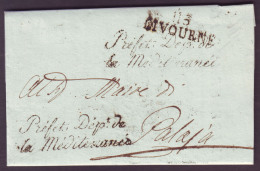 113
LIVOURNE
Préfet. Dépt. de
la Méditeranée
Al Sig. Maire di
Préfet. Dépt. de
la Méditeranée
Palaja